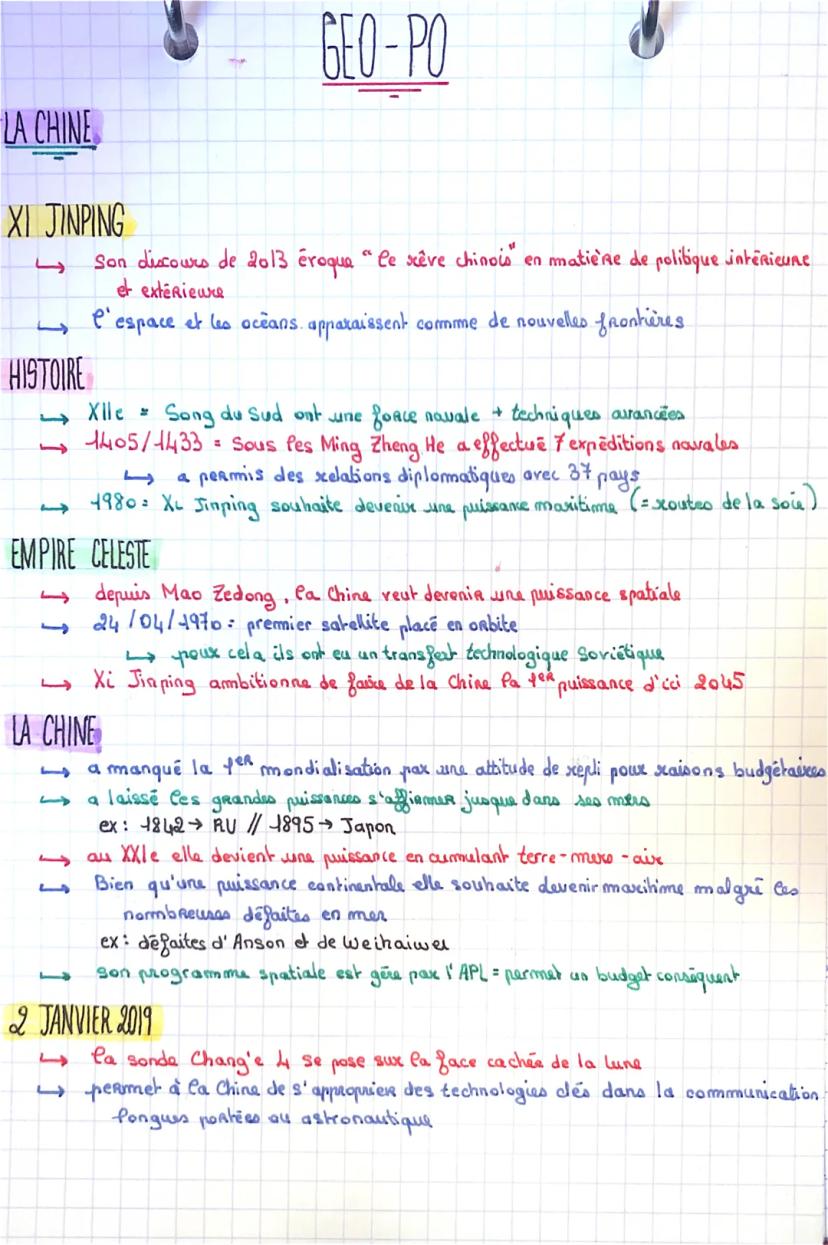 GEO-PO
LA CHINE
XI JINPING
↳ Son discours de 2013 évoque "le rêve chinois" en matière de politique intérieure
et extérieure
↳ l'espace et les océans apparaissent comme de nouvelles frontières
HISTOIRE
↳ XIIe = Song du Sud ont une force navale + techniques avancées
↳ 1405/1433 = Sous les Ming Zheng He a effectué 7 expéditions navales
↳ a permis des relations diplomatiques avec 37 pays
↳ 1980 = Xi Jinping souhaite devenir une puissance maritime (= routes de la soie)
EMPIRE CELESTE
↳ depuis Mao Zedong, la Chine veut devenir une puissance spatiale
↳ 24/04/1970 = premier satellite placé en orbite
↳ pour cela ils ont eu un transfert technologique Soviétique
↳ Xi Jinping ambitionne de faire de la Chine la 1er puissance d'ici 2045
LA CHINE
↳ a manqué la 1er mondialisation par une attitude de repli pour raisons budgétaires
↳ a laissé les grandes puissances s'affirmer jusque dans ses mers
ex : 1842 → RU // 1895 → Japon
↳ au XXIe elle devient une puissance en cumulant terre - mers - air
↳ Bien qu'une puissance continentale elle souhaite devenir maritime malgré les
nombreuses défaites en mer
ex : défaites d'Anson et de Weihaiwei
↳ son programme spatiale est gére par l'APL = permet un budget conséquent
2 JANVIER 2019
↳ la sonde Chang'e 4 se pose sur la face cachée de la lune
↳ permet à la Chine de s'approprier des technologies clés dans la communication
longues portées ou astronautique